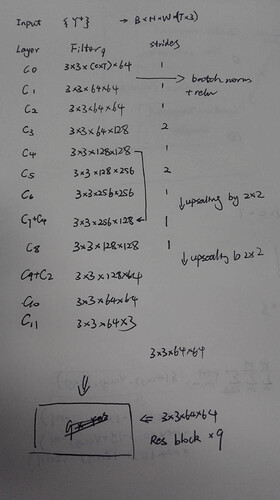 Input {Y⁺} → B×H×W×(T×3)
Layer Filters strides
C0 3×3×(CXT)×64 1 → batch norm + relu
C1 3×3×64×64 1
C2 3×3×64×64 1
C3 3×3×64×128 2
C4 3×3×128×128 1
C5 3×3×128×256 2
C6 3×3×256×256 1
↓upscaling by 2×2
C7+C4 3×3×256×128 1
C8 3×3×128×128 1
↓upscaling b 2×2
C9+C2 3×3×128×64
C10 3×3×64×64
C11 3×3×64×3
3×3×64×64
⇓
⇐ 3×3×64×64
Res block ×9